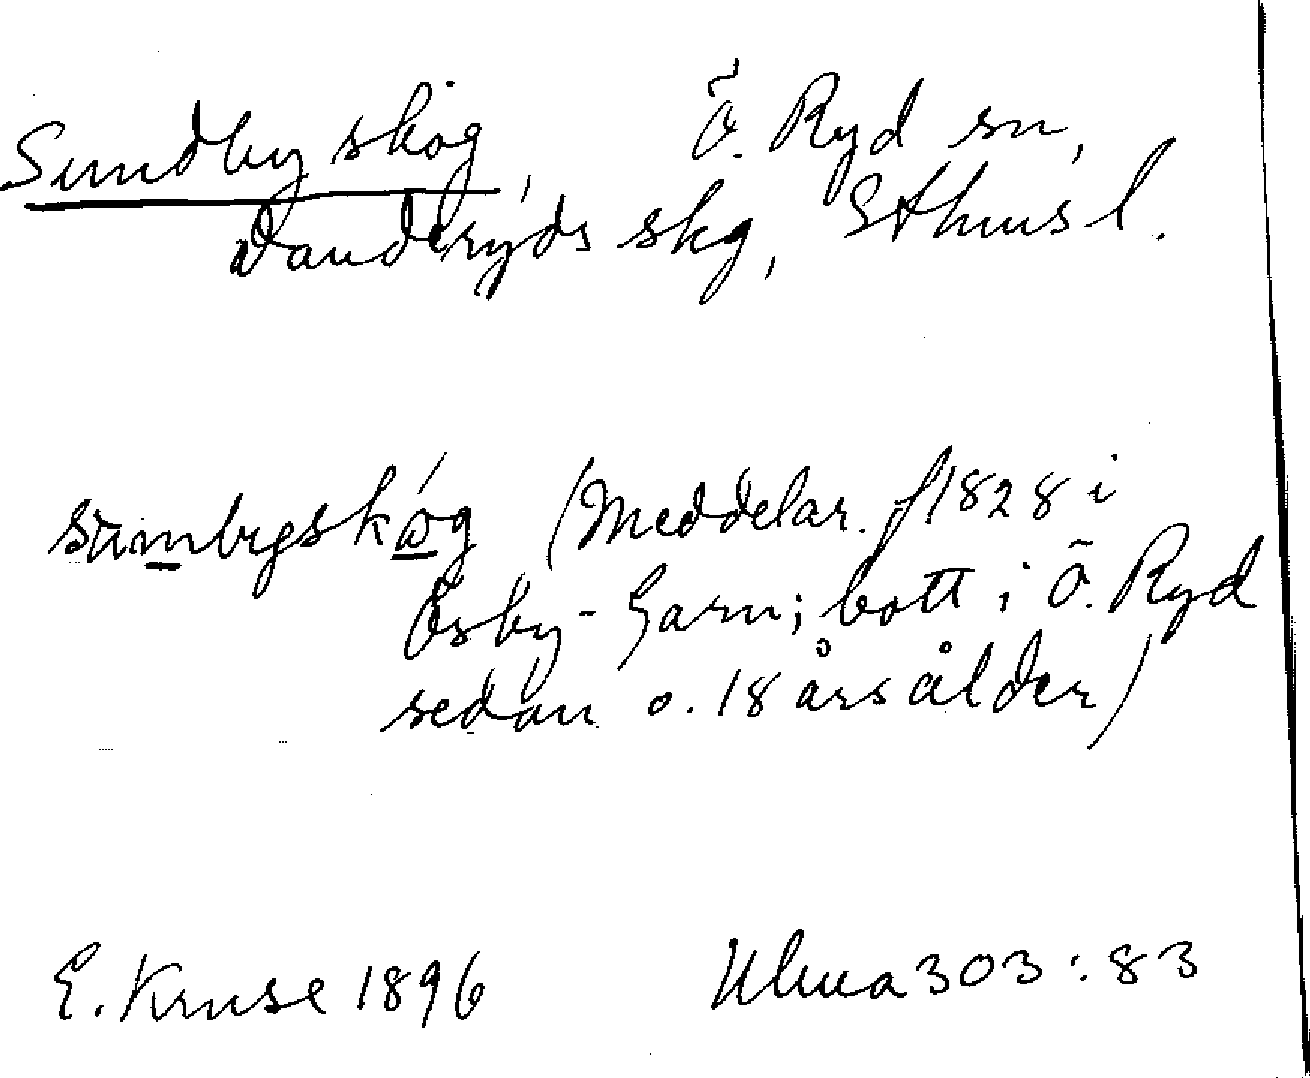 Sundby skog, Ö. Ryd sn,
Danderyds skg, Sthms l.
sumbyskóg (Meddelar. f 1828 i
Össby-Garn; bott i Ö. Ryd
sedan o. 18 års ålder)
E. Kruse 1896 Ulma 303:83